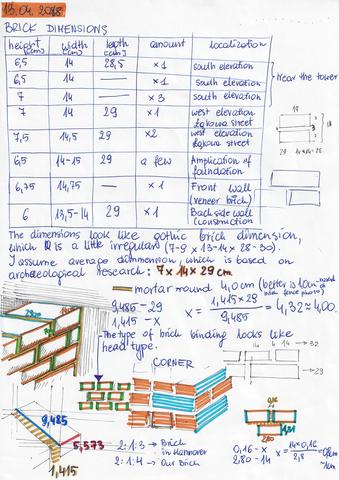 13.04.2018
BRICK DIMENSIONS
height (cm) width (cm) length (cm) amount localization
6,5 14 28,5 ×1 south elevation
6,5 14 — ×1 south elevation
7 14 — ×3 south elevation
Near the tower
7 14 29 ×1 west elevation
Łąkowa street
7,5 14,5 29 ×2 west elevation
Łąkowa street
6,5 14-15 29 a few Amplication of
foundation
6,75 14,75 — ×1 Front wall
(veneer brick)
6 13,5-14 29 ×1 Back side wall
(construction
The dimensions look like gothic brick dimension,
which is a little irregular (7-9 × 13-14 × 28-30).
I assume average dimension, which is based on
archeological research: 7×14×29 cm
mortar round 4,0cm
9,485 – 29
1,415 – x
x = 1,415 × 29 / 9,485 = 4,32 ≈ 4,00
- The type of brick binding looks like
head type.
14 4 14 → 32
→ 29
CORNER
9,485
5,573
1,415
2:1:3 → Brick
in Hannover
2:1:4 → Our Brick
0,16
2,80
0,16 – x
2,80 – 14
x = 14×0,16 / 2,8